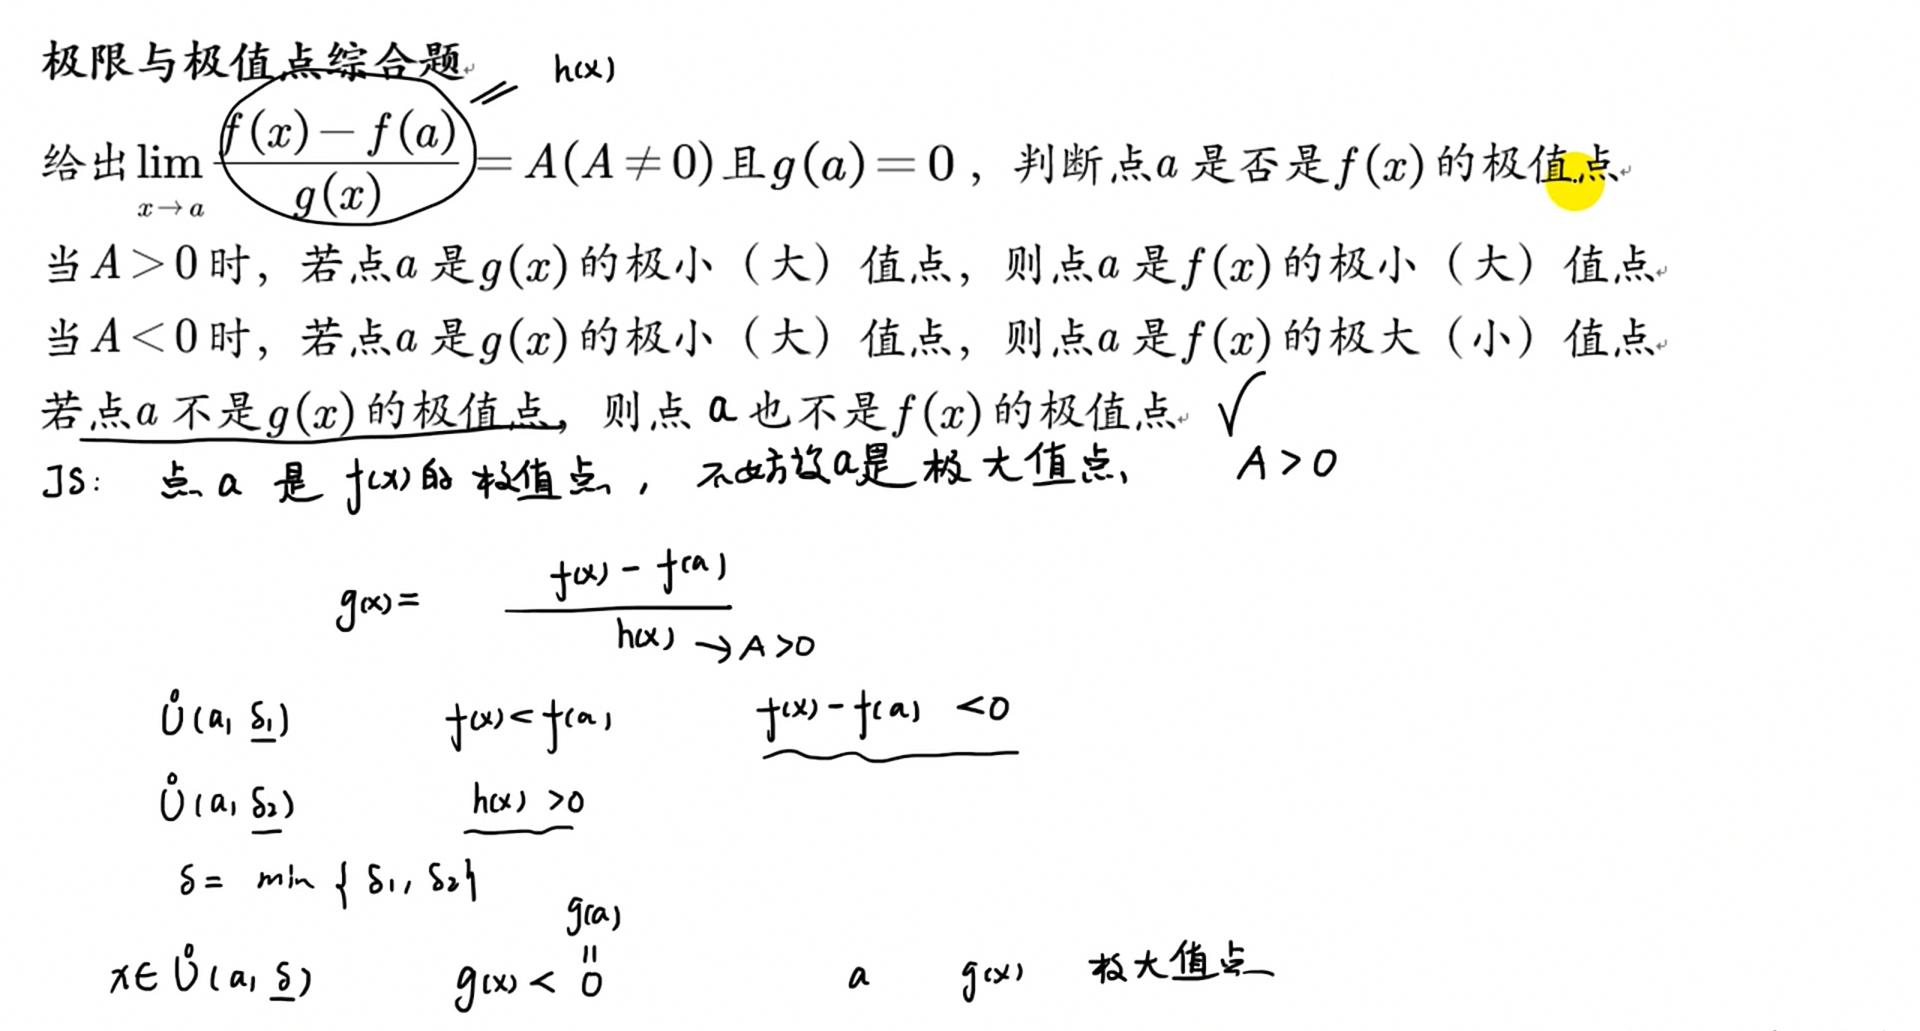 极限与极值点综合题 h(x)
给出 lim_{x→a} (f(x)−f(a))/g(x) = A(A≠0)且g(a)=0，判断点a是否是f(x)的极值点
当A>0时，若点a是g(x)的极小（大）值点，则点a是f(x)的极小（大）值点
当A<0时，若点a是g(x)的极小（大）值点，则点a是f(x)的极大（小）值点
若点a不是g(x)的极值点，则点a也不是f(x)的极值点 √
JS: 点a是f(x)的极值点, 不妨设a是极大值点, A>0
g(x)= (f(x)-f(a))/h(x) →A>0
Ů(a, δ₁) f(x)<f(a) f(x)-f(a) <0
Ů(a, δ₂) h(x) >0
δ= min{δ₁, δ₂}
g(a)
=
x∈Ů(a, δ) g(x)< 0 a g(x) 极大值点